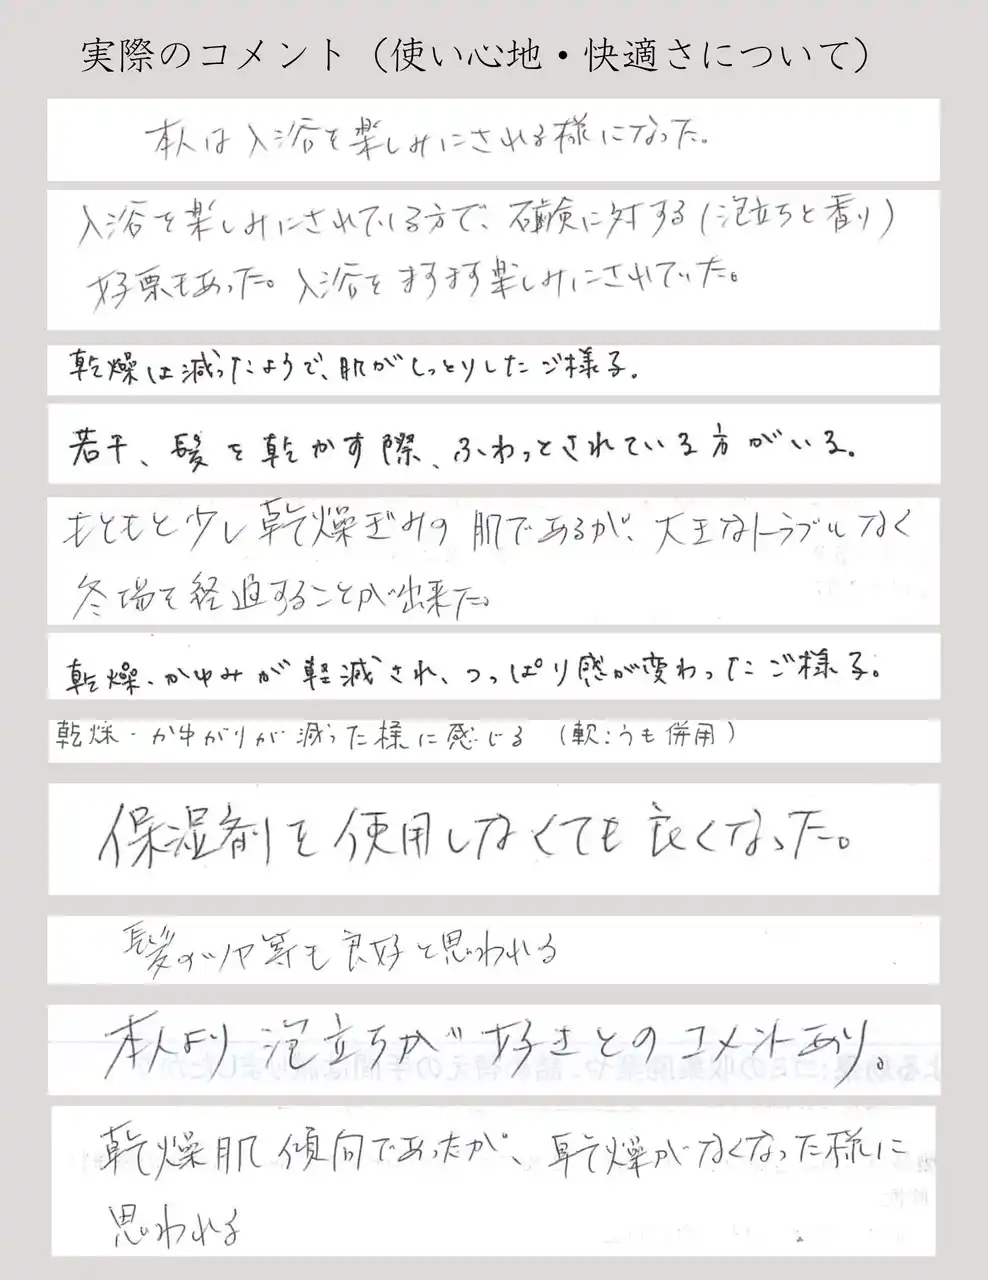 実際のコメント（使い心地・快適さについて）
本人は入浴を楽しみにされる様になった。
入浴を楽しみにされている方で、石鹸に対する（泡立ちと香り）
好票もあった。入浴をますます楽しみにされていた。
乾燥は減ったようで、肌がしっとりしたご様子。
若干、髪を乾かす際、ふわっとされている方がいる。
もともと少し乾燥ぎみの肌であるが、大きなトラブルなく
冬場を経過することが出来た。
乾燥・かゆみが軽減され、つっぱり感が変わったご様子。
乾燥・かゆがりが減った様に感じる（軟こうも併用）
保湿剤を使用しなくても良くなった。
髪のツヤ等も良好と思われる
本人より泡立ちが好きとのコメントあり。
乾燥肌傾向であったが、乾燥がなくなった様に
思われる